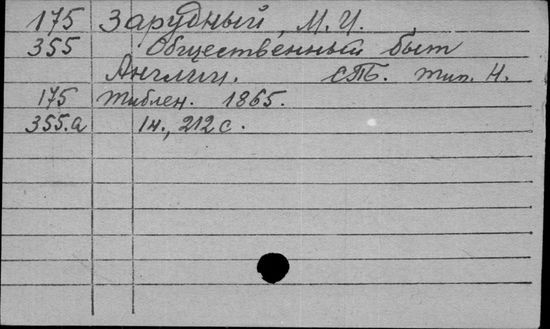 175 Зарудный, М. И.
355 Общественный быт
Англии. СПБ. тип. Н.
175 Тиблен. 1865.
355.а 1н., 212 с.